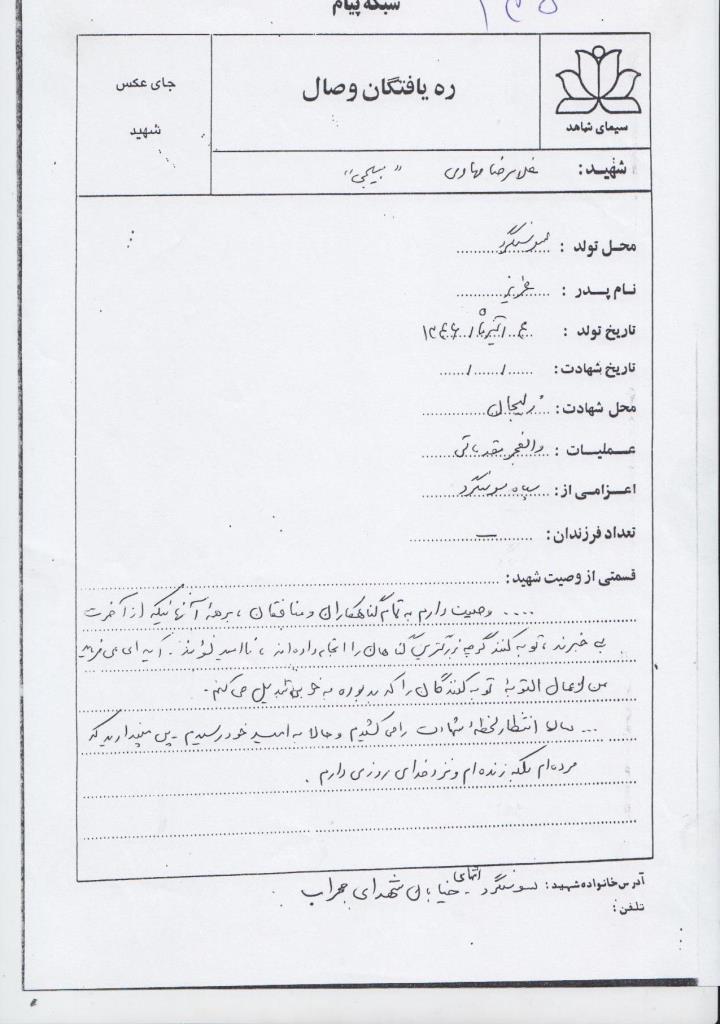 شبکه پیام
۱۳۵
ره یافتگان وصال
جای عکس
شهید
سیمای شاهد
شهید: غلامرضا مهاوی "بسیجی"
محل تولد: سوسنگرد
نام پدر:
تاریخ تولد: ۱۳۴۶
تاریخ شهادت: / /
محل شهادت:
عملیات: والفجر مقدماتی
اعزامی از: سپاه سوسنگرد
تعداد فرزندان: ـ
قسمتی از وصیت شهید:
.... وصیت دارم به تمام گناهکاران و منافقان، بر همهٔ آنهائیکه از آخرت
بی خبرند، توبه کنند گرچه بزرگترین گناهان را انجام داده‌اند، ناامید نشوند. آیه‌ای می فرماید
من اعمال التوبة توبه کنندگان را که بد بوده به خوبی تبدیل می کنم.
... سالها انتظار لحظهٔ شهادت را می کشیدم و حالا به امید خود رسیدم. پس مپندارید که
مرده‌ام بلکه زنده‌ام و نزد خدای روزی دارم.
آدرس خانواده شهید: سوسنگرد - انتهای خیابان شهدای محراب
تلفن: